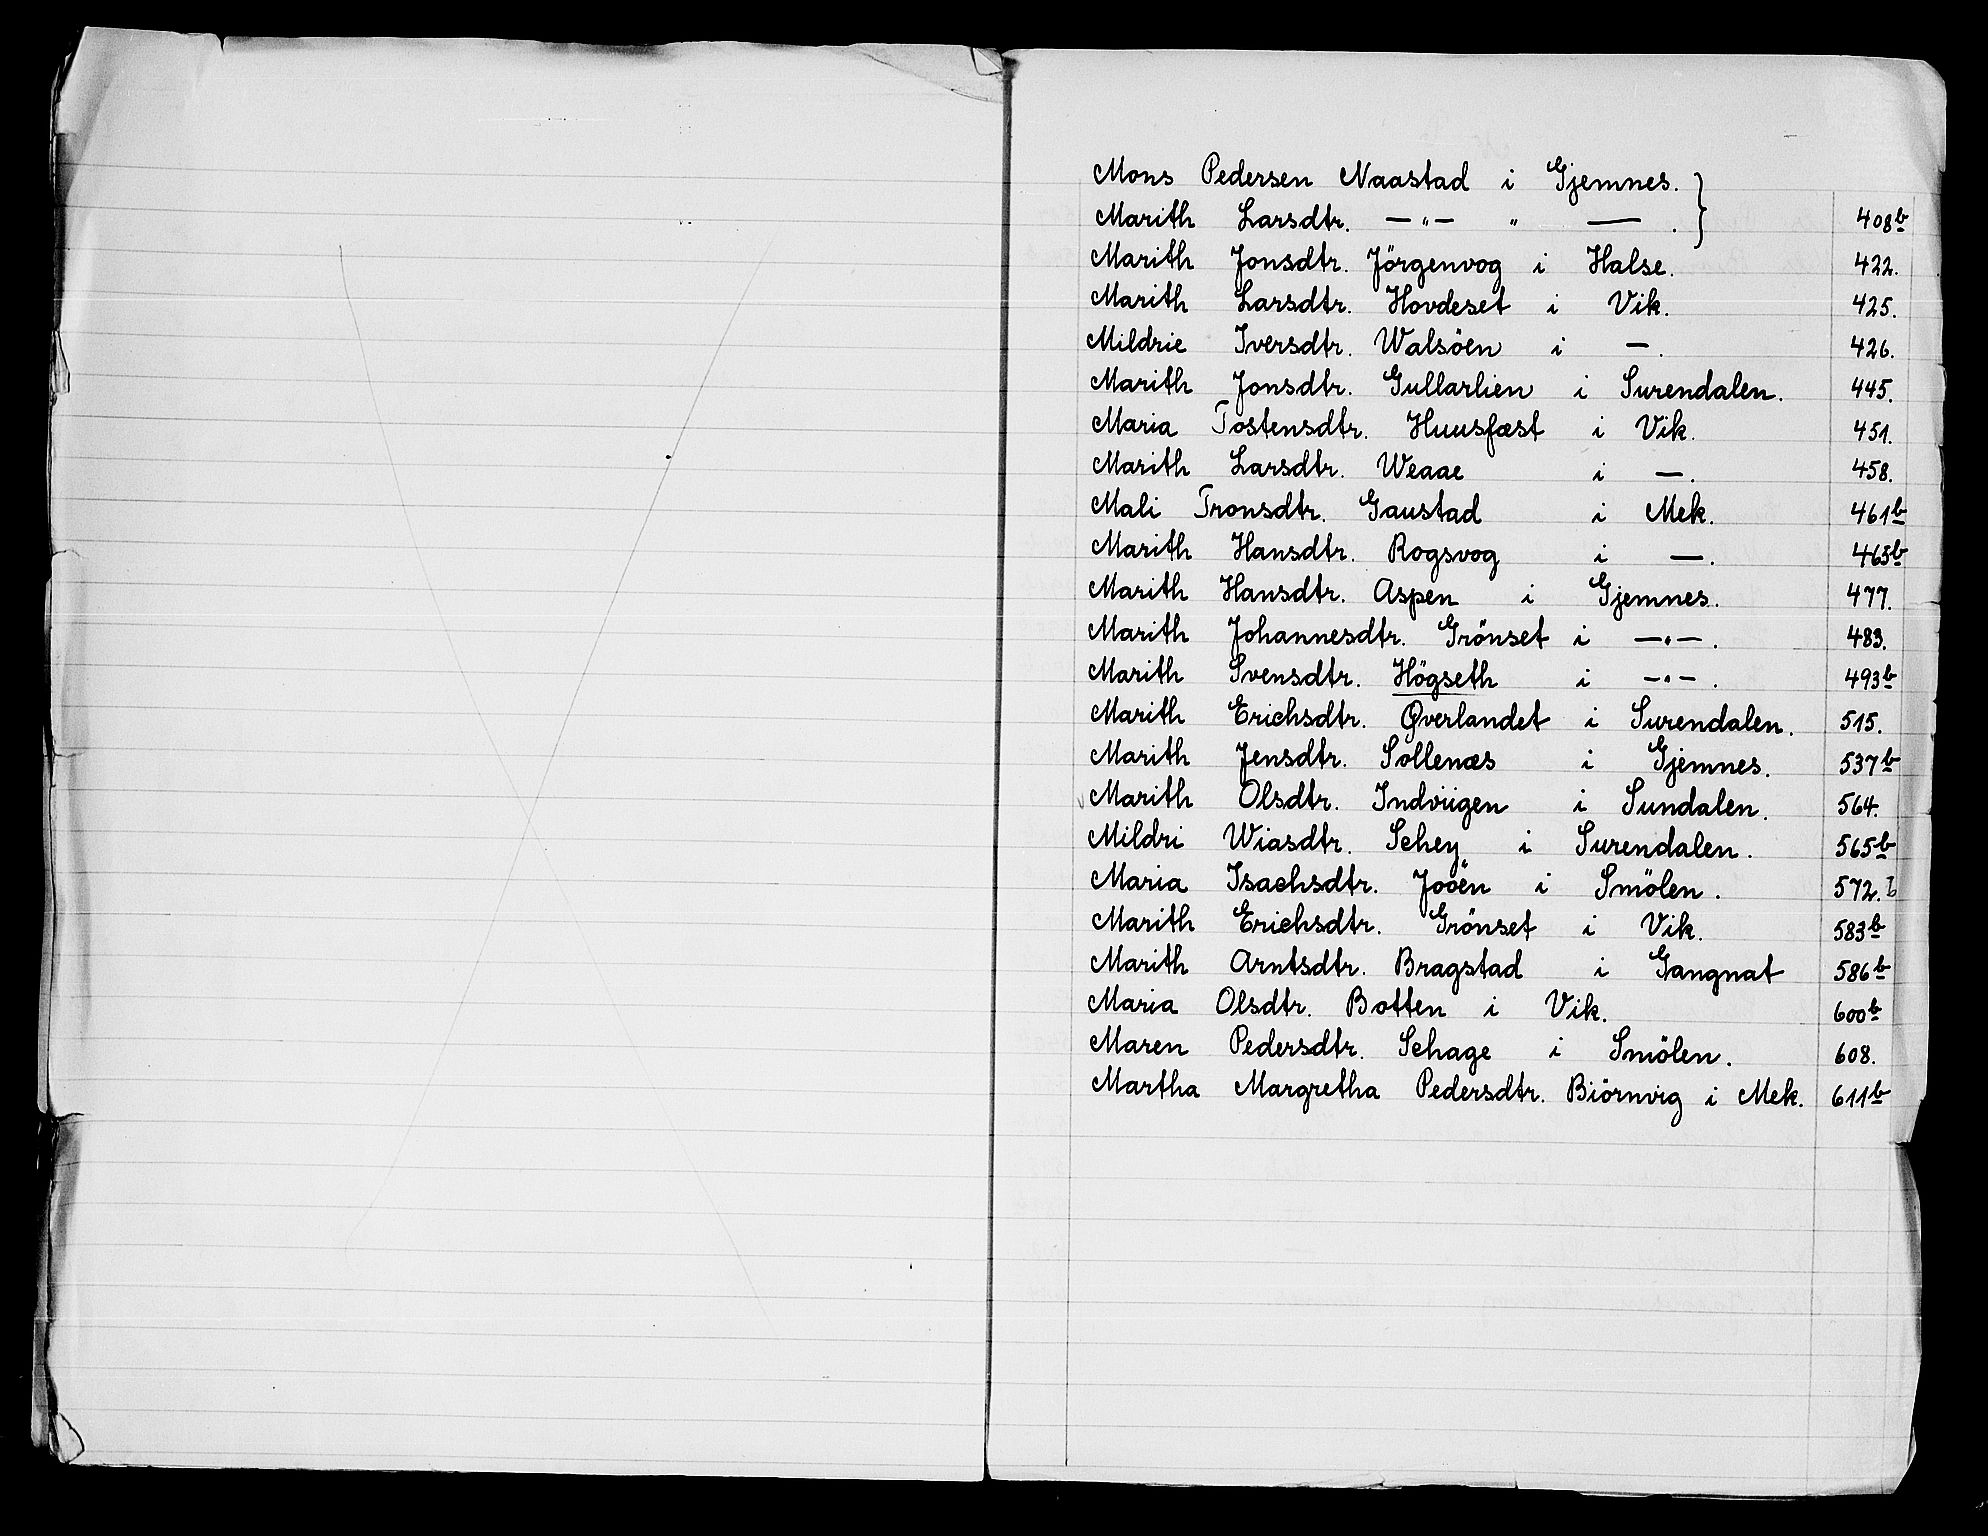 Mons Pedersen Naastad i Gjemnes. }
Marith Larsdtr. —"— " — . } 408b
Marith Jonsdtr. Jörgenvog i Halse. 422.
Marith Larsdtr. Hovdeset i Vik. 425.
Mildrie Iversdtr. Walsöen i — . 426.
Marith Jonsdtr. Gullarlien i Surendalen. 445.
Maria Tostensdtr. Huusfæst i Vik. 451.
Marith Larsdtr. Weaae i — . 458.
Mali Tronsdtr. Gaustad i Mek. 461b
Marith Hansdtr. Rogsvog i — . 465b
Marith Hansdtr. Aspen i Gjemnes. 477.
Marith Johannesdtr. Grönset i —"— . 483.
Marith Svensdtr. Högseth i —"— . 493b
Marith Erichsdtr. Øverlandet i Surendalen. 515.
Marith Jensdtr. Sollenæs i Gjemnes. 537b
Marith Olsdtr. Indviigen i Sundalen. 564.
Mildri Wiasdtr. Schey i Surendalen. 565b
Maria Isachsdtr. Jooën i Smölen. 572.b
Marith Erichsdtr. Grönset i Vik. 583b
Marith Arntsdtr. Bragstad i Gangnat 586b
Maria Olsdtr. Botten i Vik. 600b
Maren Pedersdtr. Schage i Smölen. 608.
Martha Margretha Pedersdtr. Biörnvig i Mek. 611b